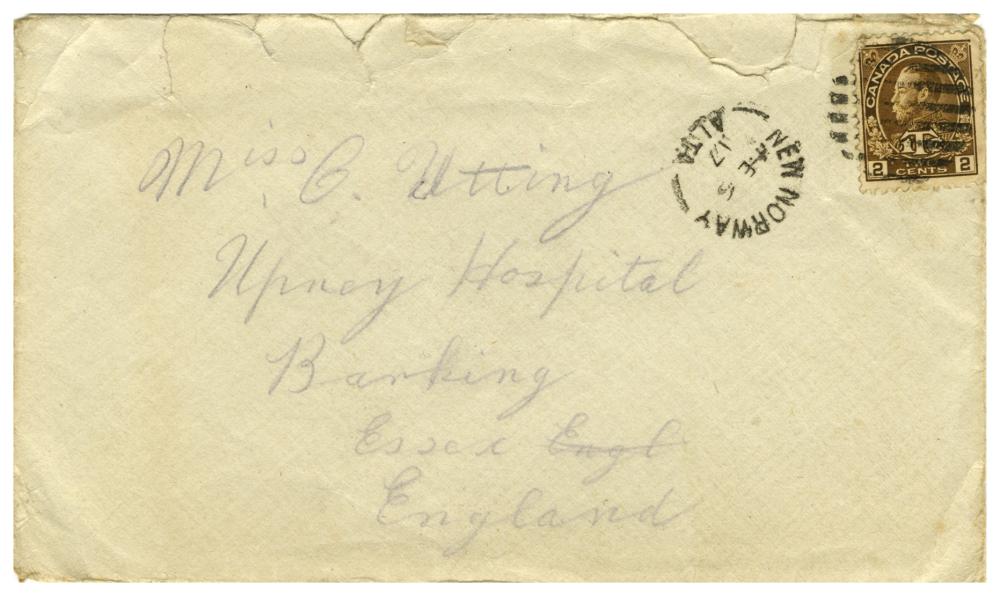 CANADA POSTAGE
2 CENTS 2
NEW NORWAY
ALTA
17
Miss C. Utting
Upney Hospital
Barking
Essex Engl
England